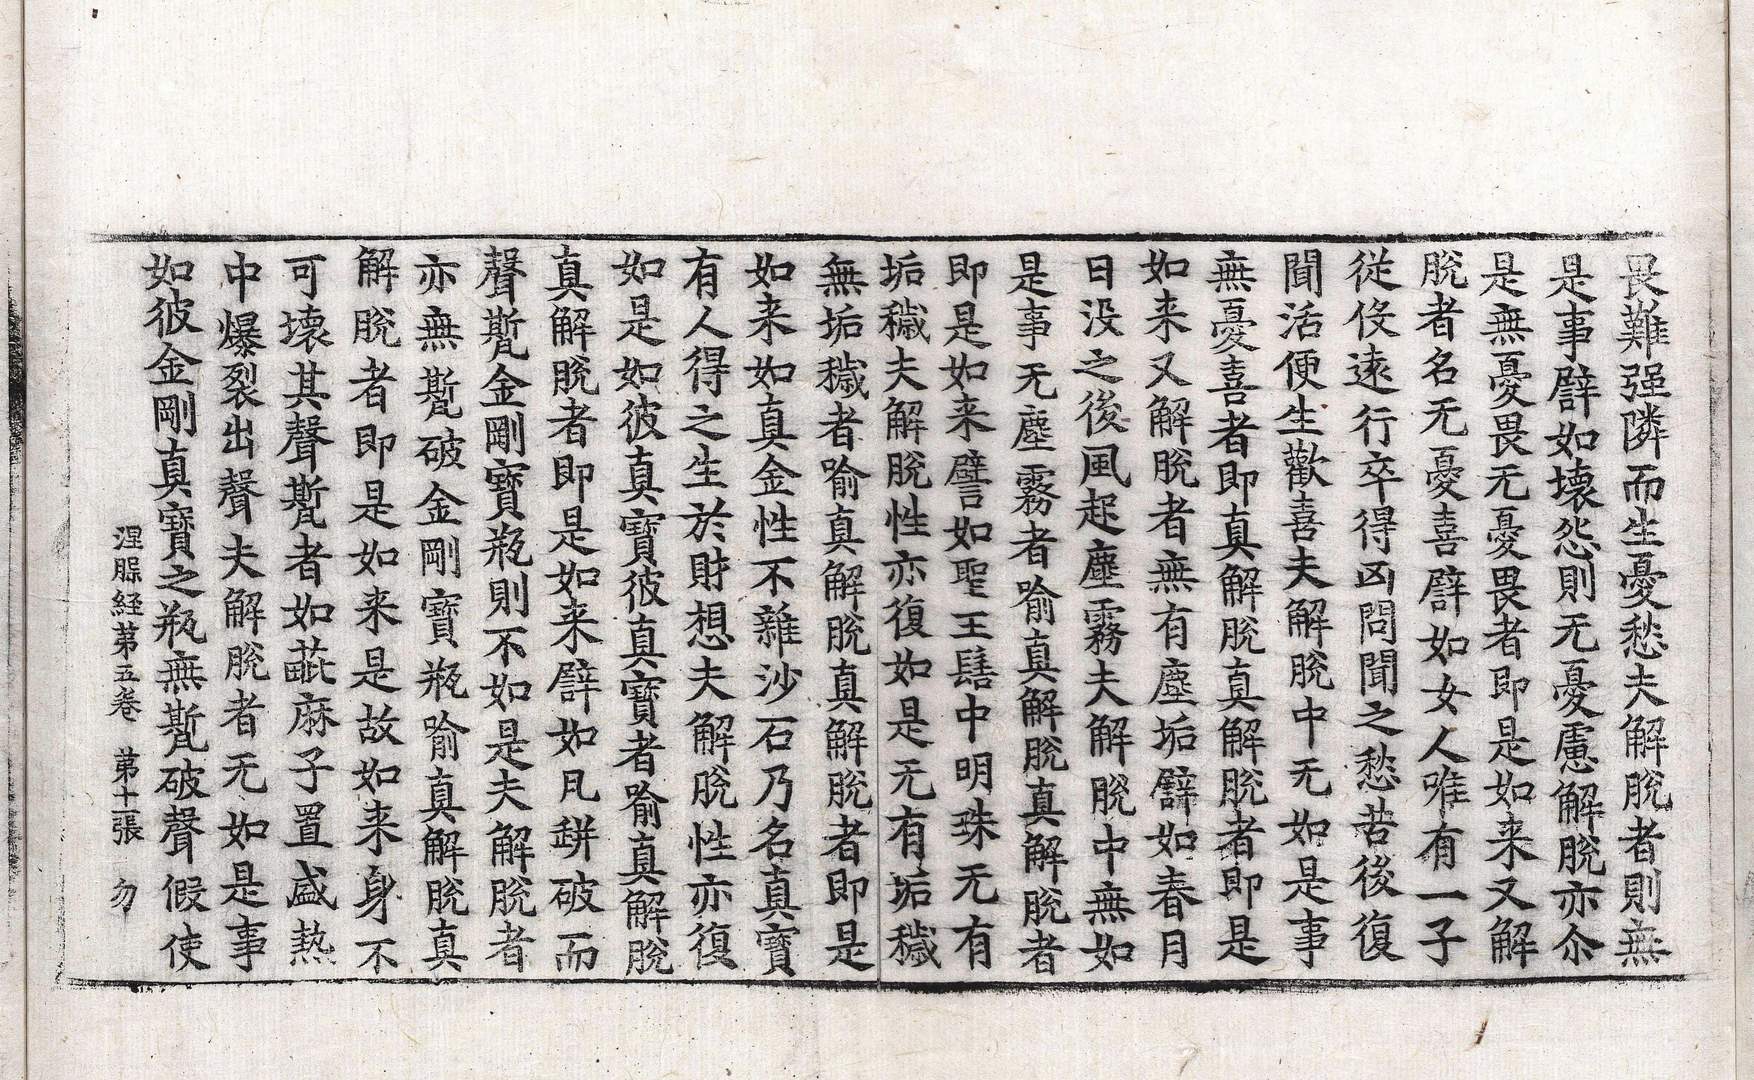 畏難强隣而生憂愁夫解脫者則無
是事譬如壊怨則无憂慮解脫亦尒
是無憂畏无憂畏者即是如来又解
脫者名无憂喜譬如女人唯有一子
從役遠行卒得凶問聞之愁苦後復
聞活便生歡喜夫解脫中无如是事
無憂喜者即真解脫真解脫者即是
如来又解脫者無有塵垢譬如春月
日没之後風起塵霧夫解脫中無如
是事无塵霧者喻真解脫真解脫者
即是如来譬如聖王髻中明珠无有
垢穢夫解脫性亦復如是无有垢穢
無垢穢者喻真解脫真解脫者即是
如来如真金性不雜沙石乃名真寶
有人得之生於財想夫解脫性亦復
如是如彼真寶彼真寶者喻真解脫
真解脫者即是如来譬如凡缾破而
聲㽄金剛寶瓶則不如是夫解脫者
亦無㽄破金剛寶瓶喻真解脫真
解脫者即是如来是故如来身不
可壊其聲㽄者如蓖麻子置盛熱
中爆裂出聲夫解脫者无如是事
如彼金剛真寶之瓶無㽄破聲假使
涅槃経第五卷 第十二張 勿